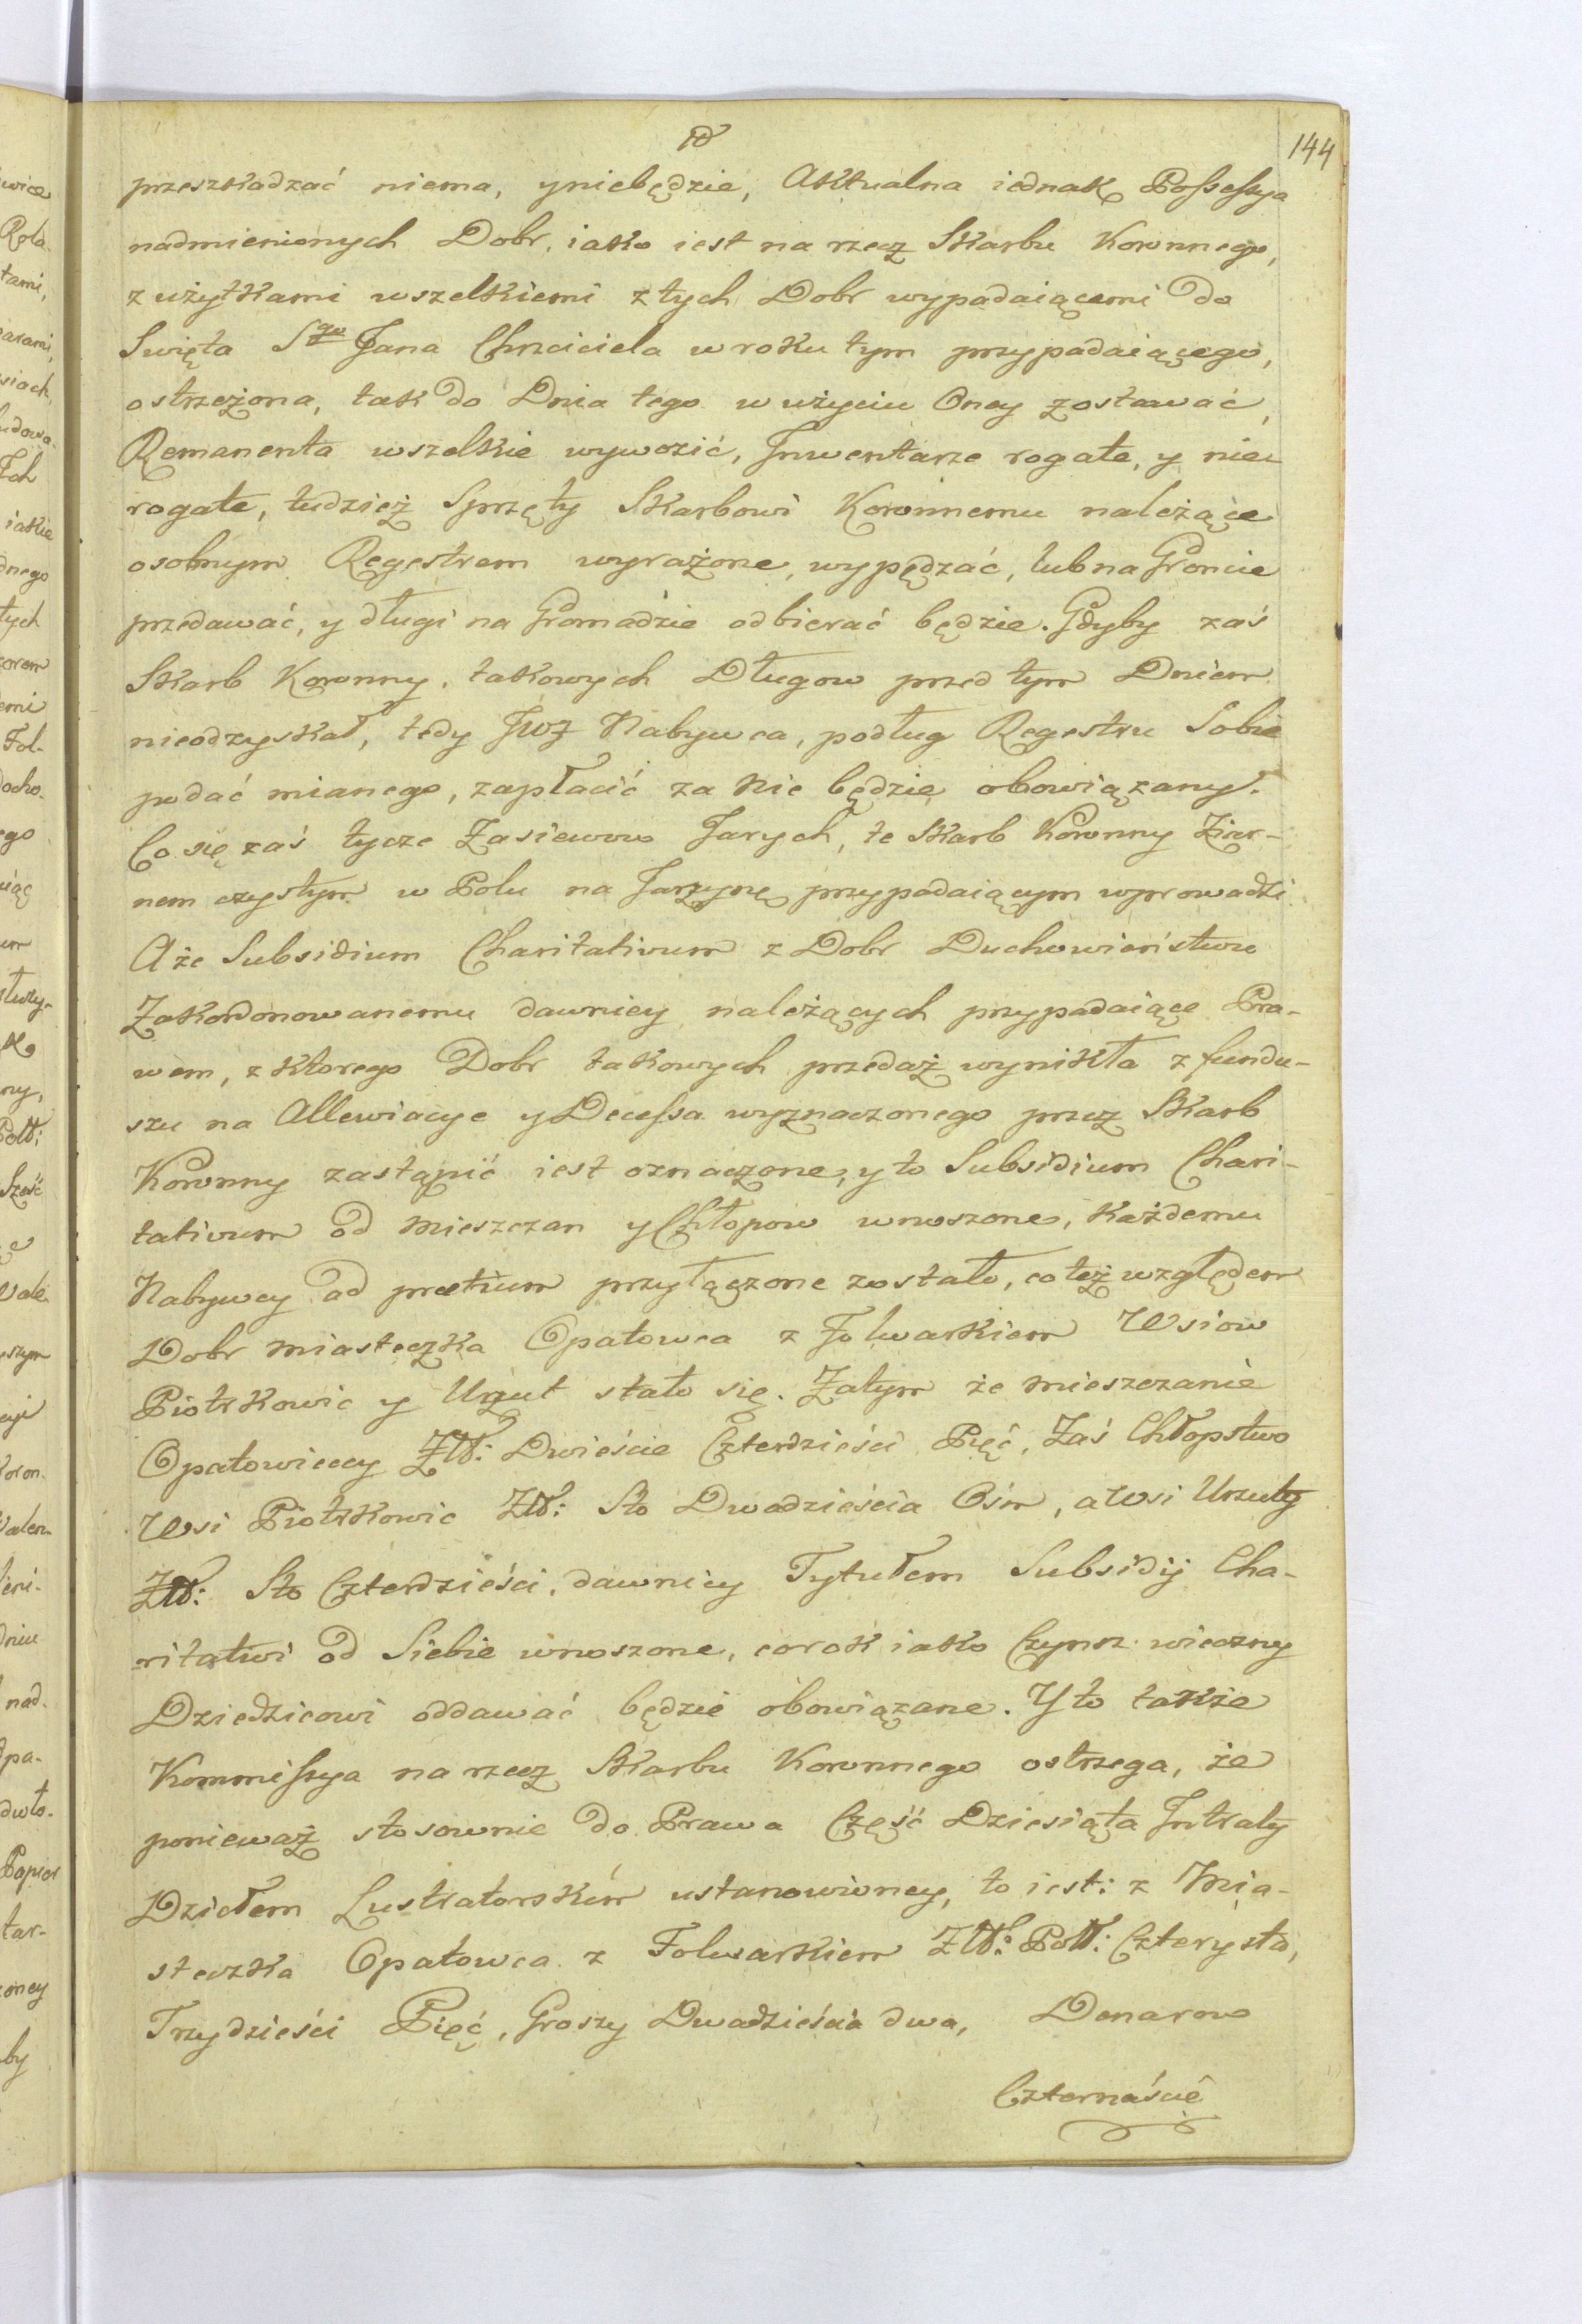 144
przeszkadzać niema, yniebędzie, Aktualna iednak Possessya
nadmienionych Dobr, iako iest na rzecz Skarbu Koronnego,
z użytkami wszelkiemi z tych Dobr wypadaiącemi do
Swięta Sgo Jana Chrzciciela w roku tym przypadaiącego,
ostrzeżona, tak do Dnia tego w użyciu Oney zostawać,
Remanenta wszelkie wywozić, Jnwentarze rogate, y nie
rogate, tudzież Sprzęty Skarbowi Koronnemu należące
osobnym Regestrem wyrażone, wypędzać, lub na Gróncie
przedawać, y długi na Gromadzie odbierać będzie. Gdyby zaś
Skarb Koronny, takowych Długow przed tym Dniem
nieodzyskał, tedy JWZ Nabywca, podług Regestru Sobie
podać mianego, zapłacić za nie będzie obowiązany.
Co się zaś tycze Zasiewow Jarych, te Skarb Koronny Ziar-
nem czystym w Polu na Jarzynę przypadaiącym wprowadzi
A że Subsidium Charitativum z Dobr Duchowieństwu
Zakordonowanemu dawniey należących przypadaiące Pra-
wem, z ktorego Dobr takowych przedaż wynikła z fundu-
szu na Allewiacye y Decessa wyznaczonego przez Skarb
Koronny zastąpić iest oznaczone, y to Subsidium Chari-
tativum od Mieszczan y Chłopow wnoszone, każdemu
Nabywcy ad pretium przyłączone zostało, co też względem
Dobr Miasteczka Opatowca z Folwarkiem Wsiow
Piotrkowic y Urzut stało się. Zatym że Mieszczanie
Opatowieccy Złł: Dwieście Czterdzieści Pięć, Zaś Chłopstwo
Wsi Piotrkowic Złł: Sto Dwadzieścia Ośm, a Wsi Urzuty
Złł: Sto Czterdzieści, dawniey Tytułem Subsidij Cha-
ritatiwi od Siebie wnoszone, corok iako Czynsz wieczny
Dziedzicowi oddawać będzie obowiązane. Y to także
Kommissya na rzecz Skarbu Koronnego ostrzega, że
ponieważ stosownie do Prawa Część Dziesiąta Jntraty
Dziełem Lustratorskim ustanowioney, to iest: z Mia-
steczka Opatowca z Folwarkiem Złł: Poll: Czterysta,
Trzydzieści Pięć, Groszy Dwadzieścia dwa, Denarow
Czternaście